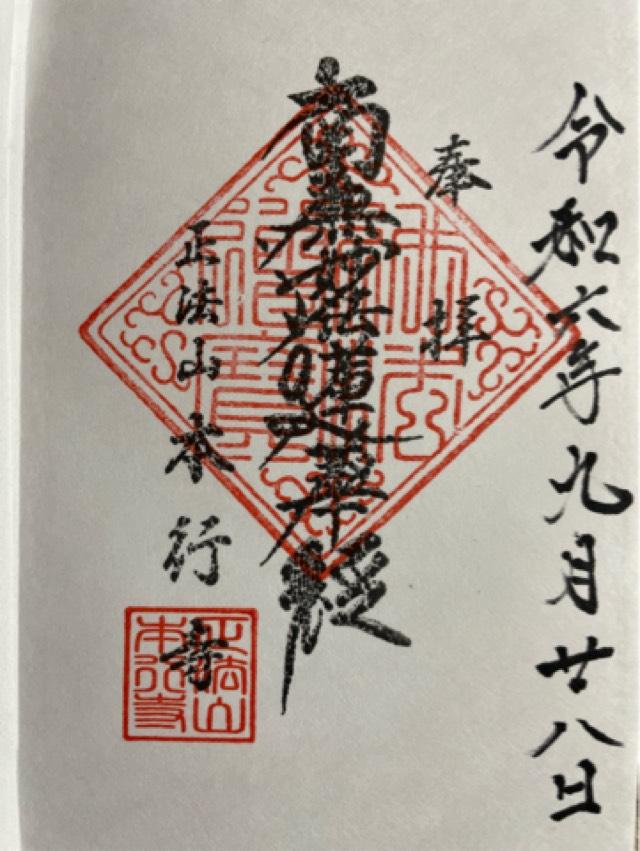 令和六年九月廿八日
奉拝
南無妙法蓮華経
正法山本行寺
正法山
本行寺